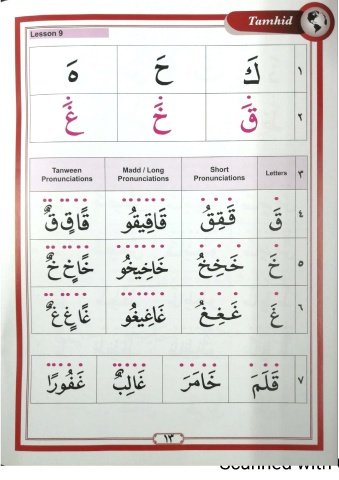 Tamhid
Lesson 9
١ كَ حَ هَ
٢ قَ خَ غَ
٣ Letters Short Pronunciations Madd / Long Pronunciations Tanween Pronunciations
٤ قَ قَقِقُ قَاقِيقُو قًاقٍقٌ
٥ خَ خَخِخُ خَاخِيخُو خًاخٍخٌ
٦ غَ غَغِغُ غَاغِيغُو غًاغٍغٌ
٧ قَلَمَ خَامَرَ غَالِبٌ غَفُورًا
١٣
Scanned with